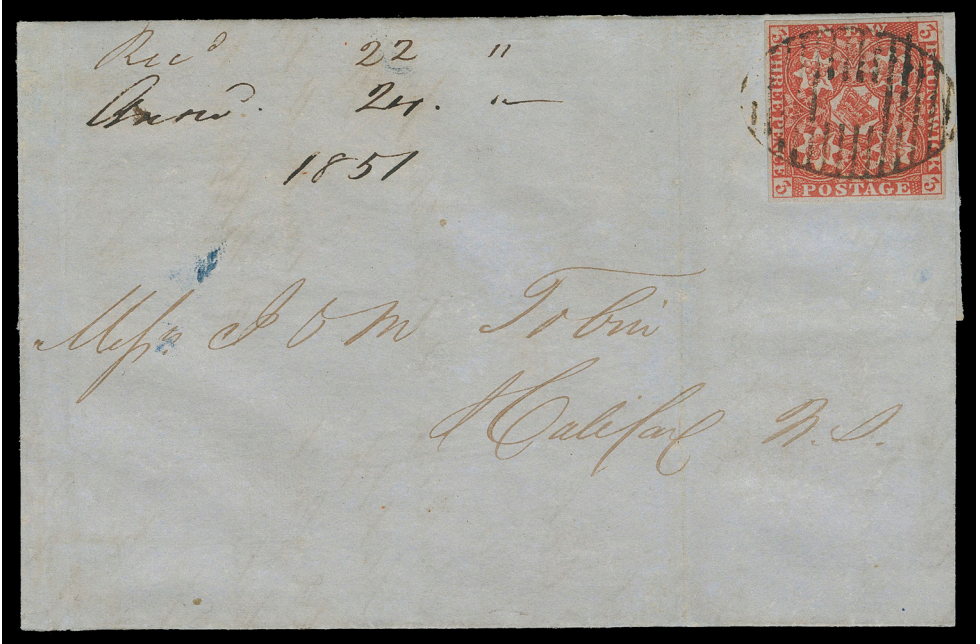 Rec^d 22 "
Answ^d. 24. "
1851
NEW
BRUNSWICK
THREE PENCE
POSTAGE
3 3 3 3
Mess^rs. J & M Tobin
Halifax N.S.